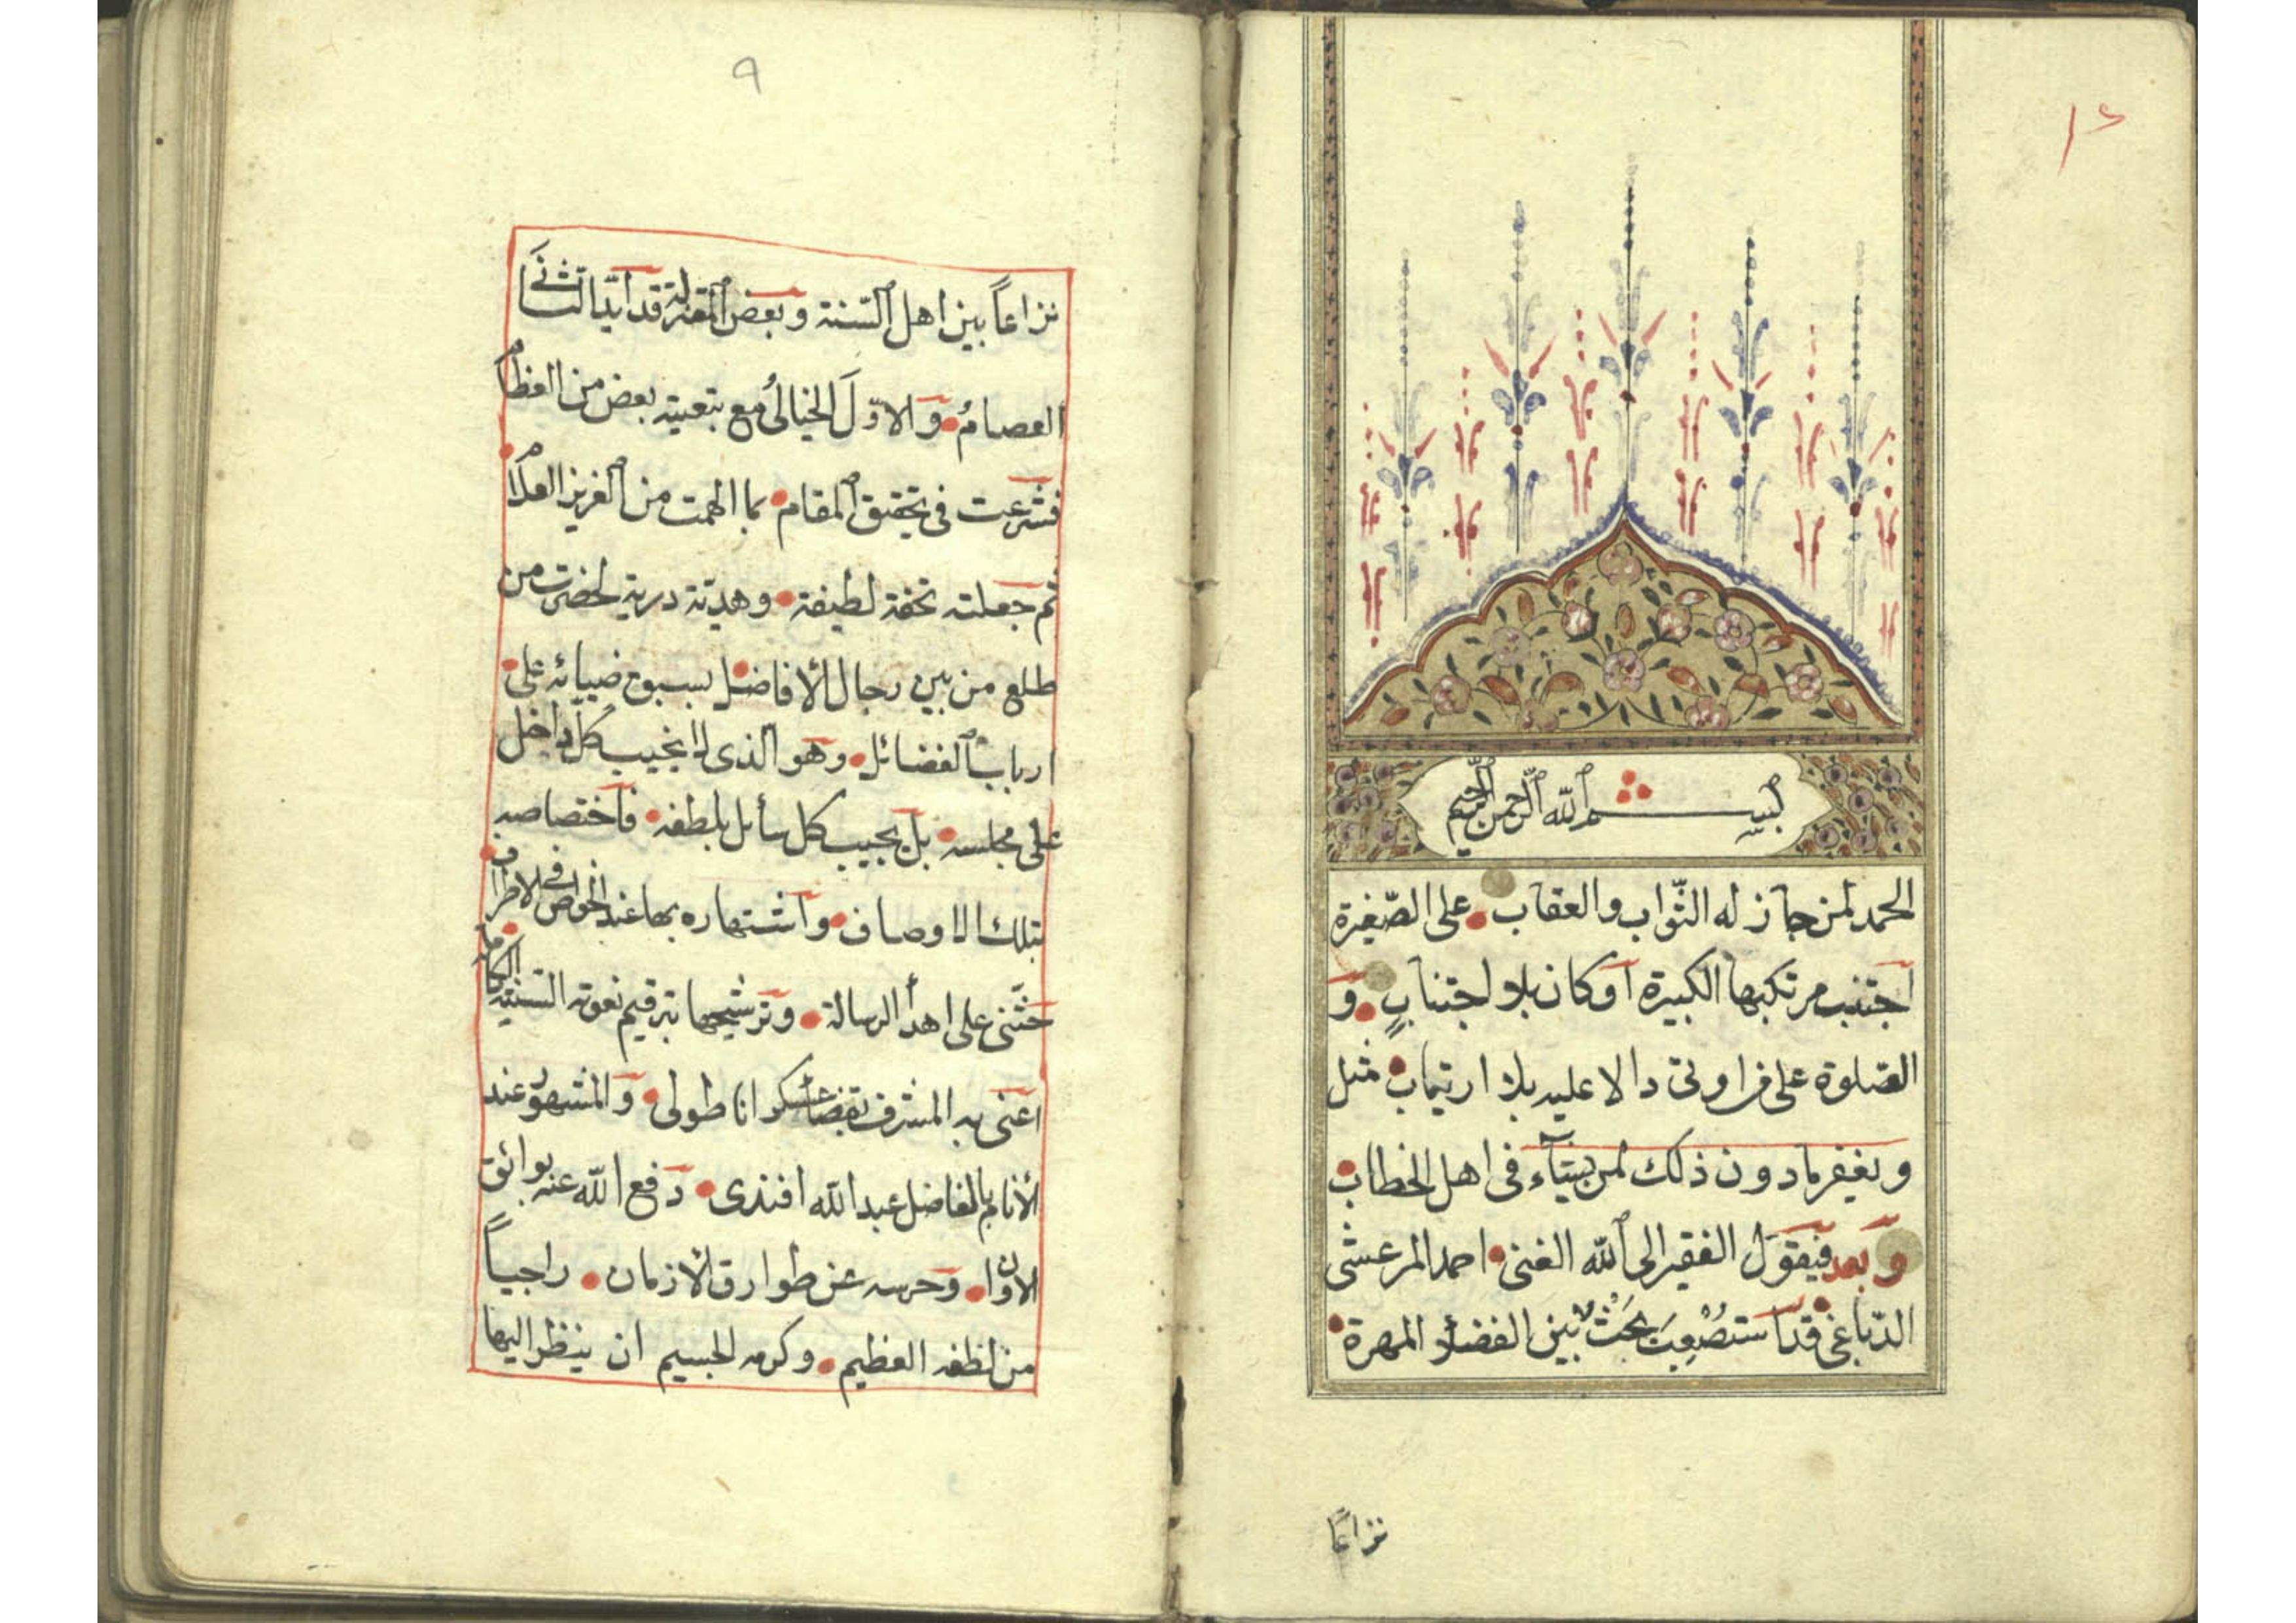 بسم الله الرحمن الرحيم
الحمد لمن جاز له الثواب والعقاب على الصغيرة
اجتنب مرتكبها الكبيرة أو كان بلا اجتناب و
الصلوة على من اوتى دالا عليه بلا ارتياب مثل
ويغفر مادون ذلك لمن يشآء في اهل الخطاب
وبعد فيقول الفقير الى الله الغنى احمد المرعشى
الدباغى قد استصعبت بحث بين الفضلاء المهرة
نزاعًا
٩
نزاعاً بين اهل السنة وبعض المعتزلة قد ايد الثانى
العصام والاوّل الخيالى مع بتعيته بعض من العظام
فشرعت فى تحقيق المقام بما الهمت من العزيز العلام
ثم جعلته تحفة لطيفة وهدية درية لحضرت من
طلع من بين رجال الأفاضل بسبوغ ضيائه على
ارباب الفضائل وهو الذى لا يخيب كل داخل
على مجلسه بل يجيب كل سائل بلطفه فاختصاصه
بتلك الاوصاف واشتهاره بها عند الخواص فى الاطراف
حثّنى على اهدأ الرسالة وترشيحها بترقيم نعوته السنية الكاملة
اعنى به المشرف بقضاء عسكر اناطولى والمشهور عند
الأنام بالفاضل عبد الله افندى دفع الله عنه بوائق
الاوان وحرسه عن طوارق الأزمان راجياً
من لطفه العظيم وكرمه الجسيم ان ينظر اليها